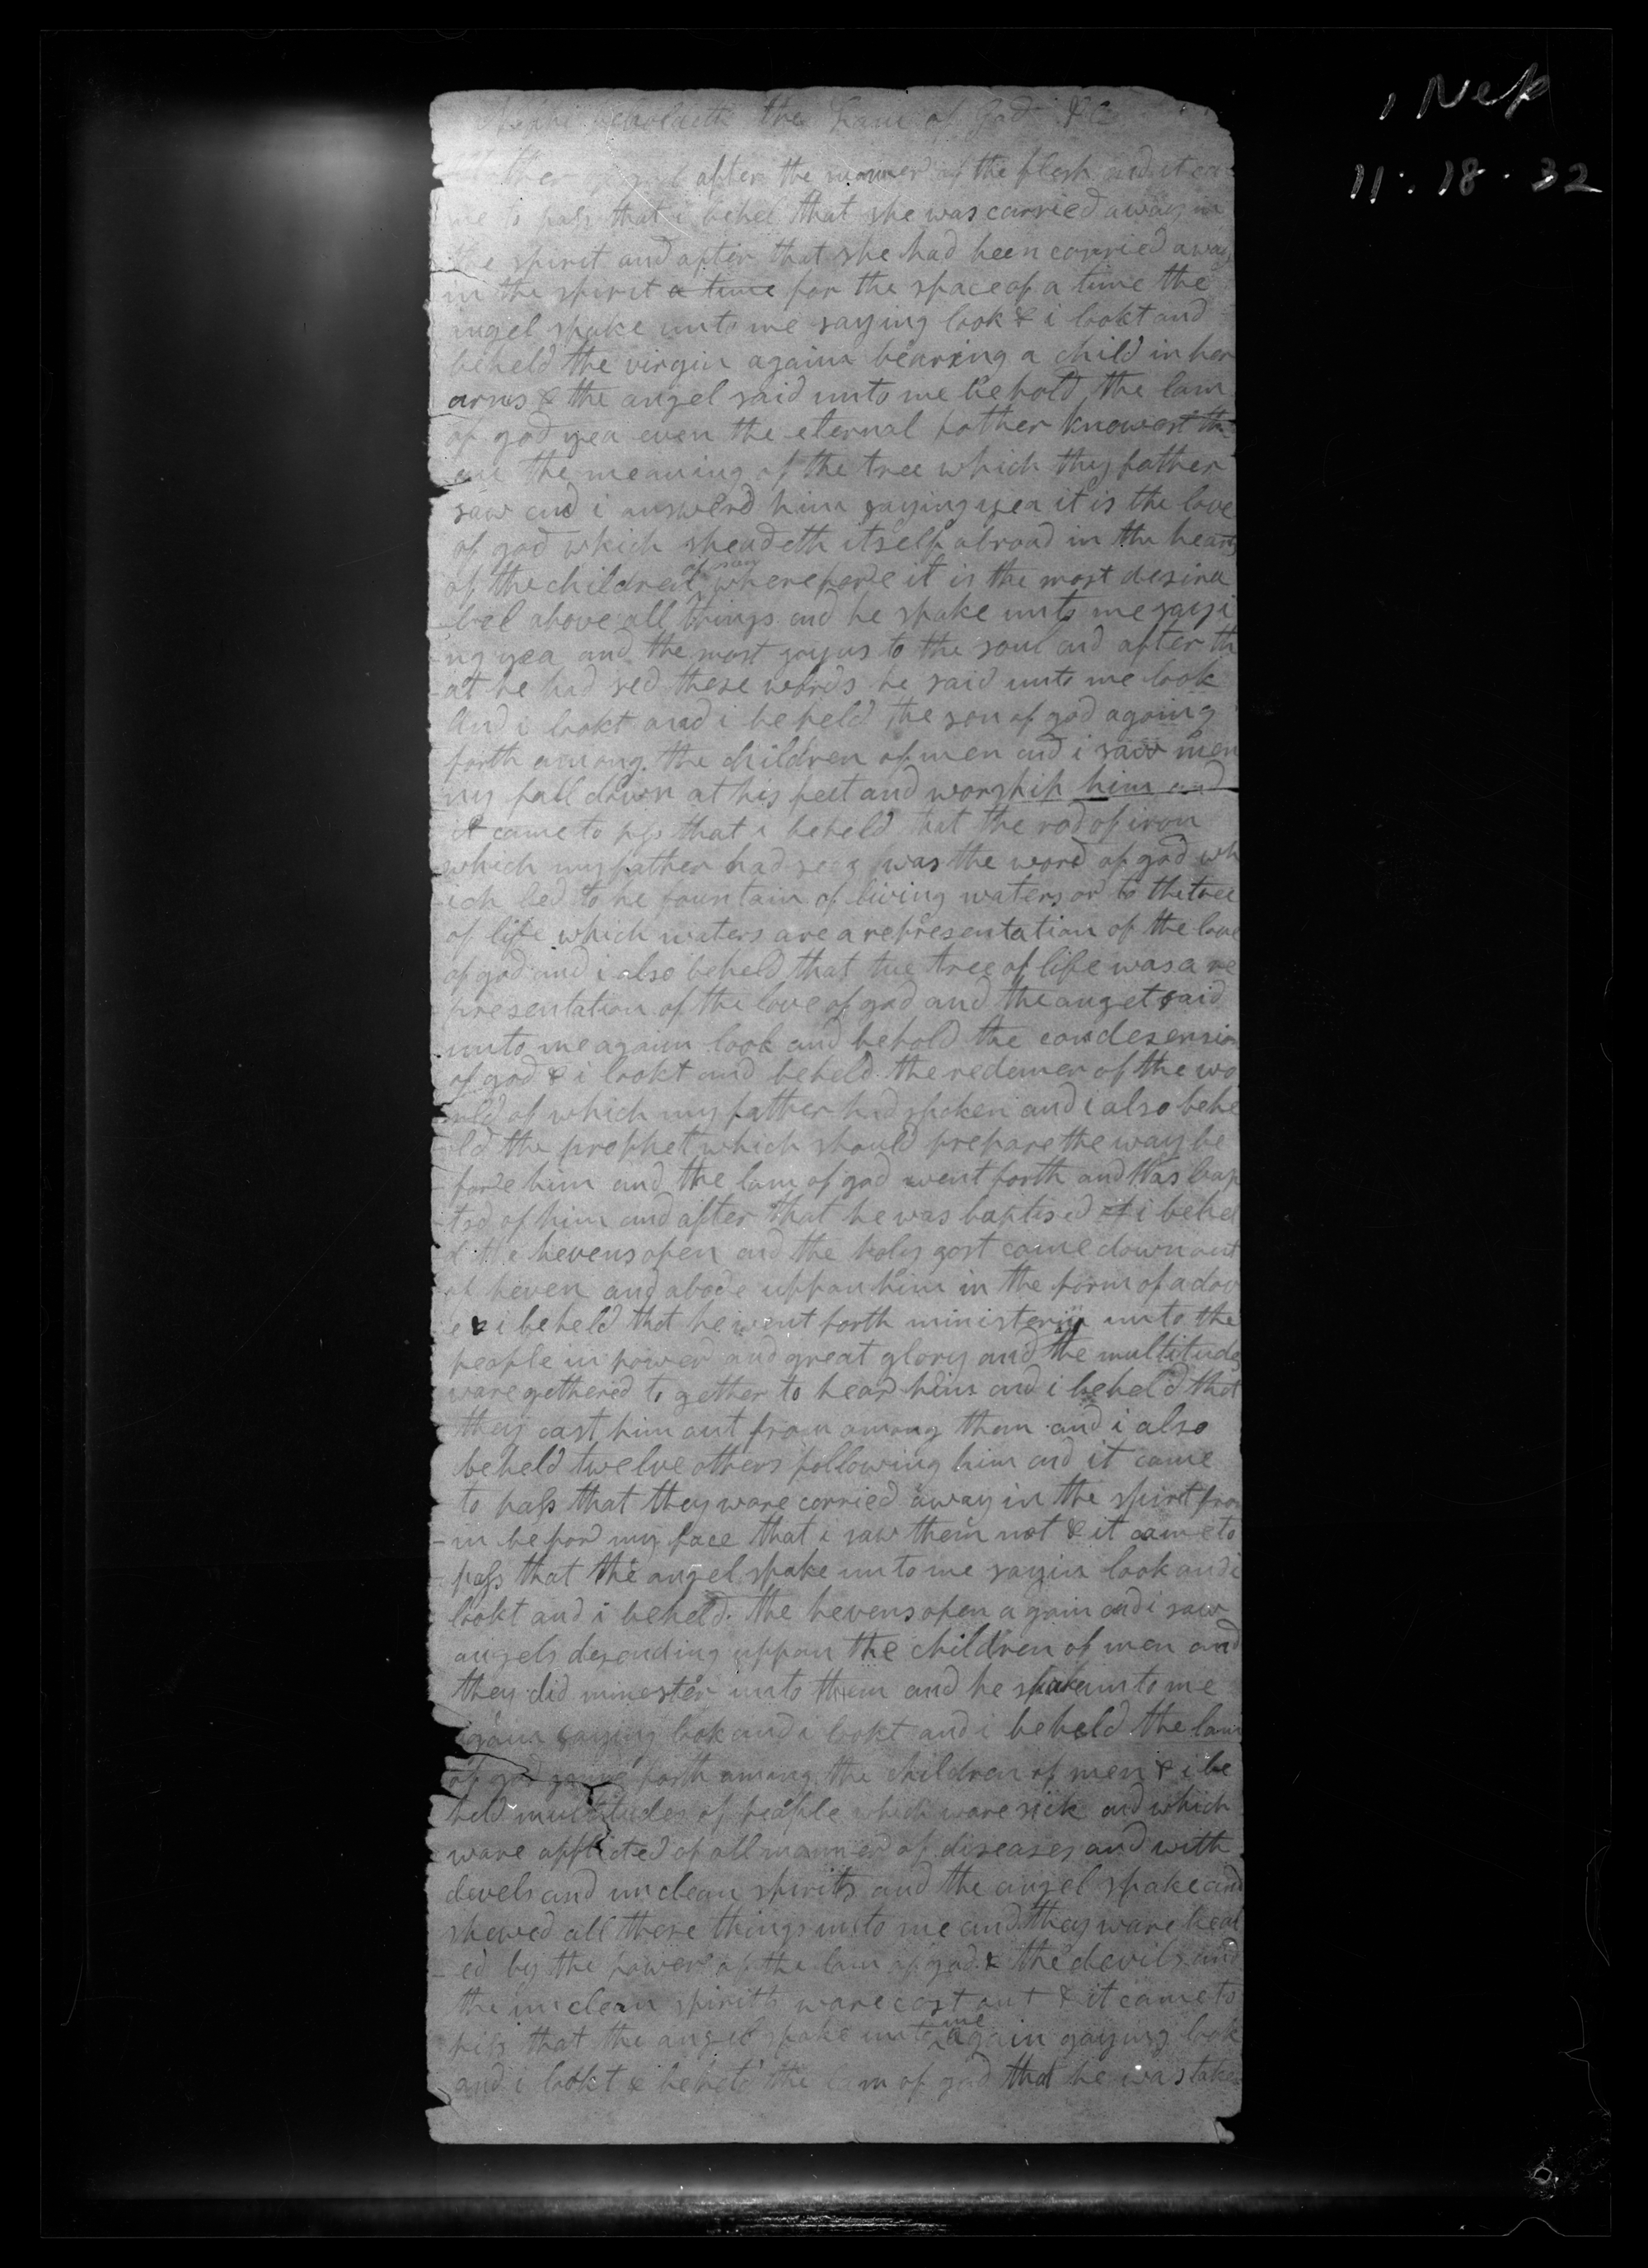 1 Nep
11:18-32
Nephi beholdeth the Lam of God &C
ther of god after the manner of the flesh and it ca
me to pass that i behel that she was carried away in
the spirit and after that she had been carried away
in the spirit a time for the space of a time the
angel spake unto me saying look & i lookt and
beheld the virgin again bearing a child in her
arms & the angel said unto me behold the lam
of god yea even the eternal father knowest th
ou the meaning of the tree which thy father
saw and i answerd him saying yea it is the love
of god which sheadeth itself abroad in the hearts
of the children of men wherefore it is the most desira
bel above all things and he spake unto me sayi
ng yea and the most joyus to the soul and after th
at he had sed these words he said unto me look
And i lookt and i beheld the son of god agoing
forth among the children of men and i saw men
ny fall down at his feet and worship him and
it came to pass that i beheld that the rod of iron
which my father had seen was the word of god wh
ich led to he fountain of living waters or to the tree
of life which waters are a representation of the love
of god and i also beheld that the tree of life was a re
presentation of the love of god and the angel said
unto me again look and behold the condesension
of god & i lookt and beheld the redemer of the wo
rld of which my father had spoken and i also behe
ld the prophet which should prepare the way be
fore him and the lam of god went forth and was bap
tsd of him and after that he was baptised i behel
d the hevens open and the holy gost came down out
of heven and abode uppon him in the form of a dov
e & i beheld that he went forth ministering unto the
people in power and great glory and the multitudes
ware gethered to gether to hear him and i beheld that
they cast him out from among them and i also
beheld twelve others following him and it came
to pass that they ware carried away in the spirit fro
m before my face that i saw them not & it came to
pass that the angel spake unto me sayin look and i
lookt and i beheld the hevens open again and i saw
angels desending uppon the children of men and
they did minester unto them and he spake unto me
again saying look and i lookt and i beheld the lam
of god going forth among the children of men & i be
held multitudes of people which ware sick and which
ware afflicted of all manner of diseases and with
devels and unclean spirits and the angel spake and
shewed all these things unto me and they ware heal
ed by the power of the lam of god & the devils and
the unclean spirits ware cast out & it came to
pass that the angel spake unto me again saying look
and i lookt & beheld the lam of god that he was take